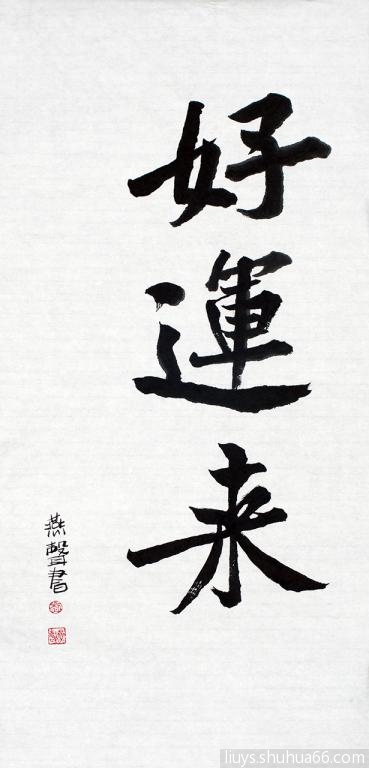 好運来
燕聲書
liuys.shuhua66.com